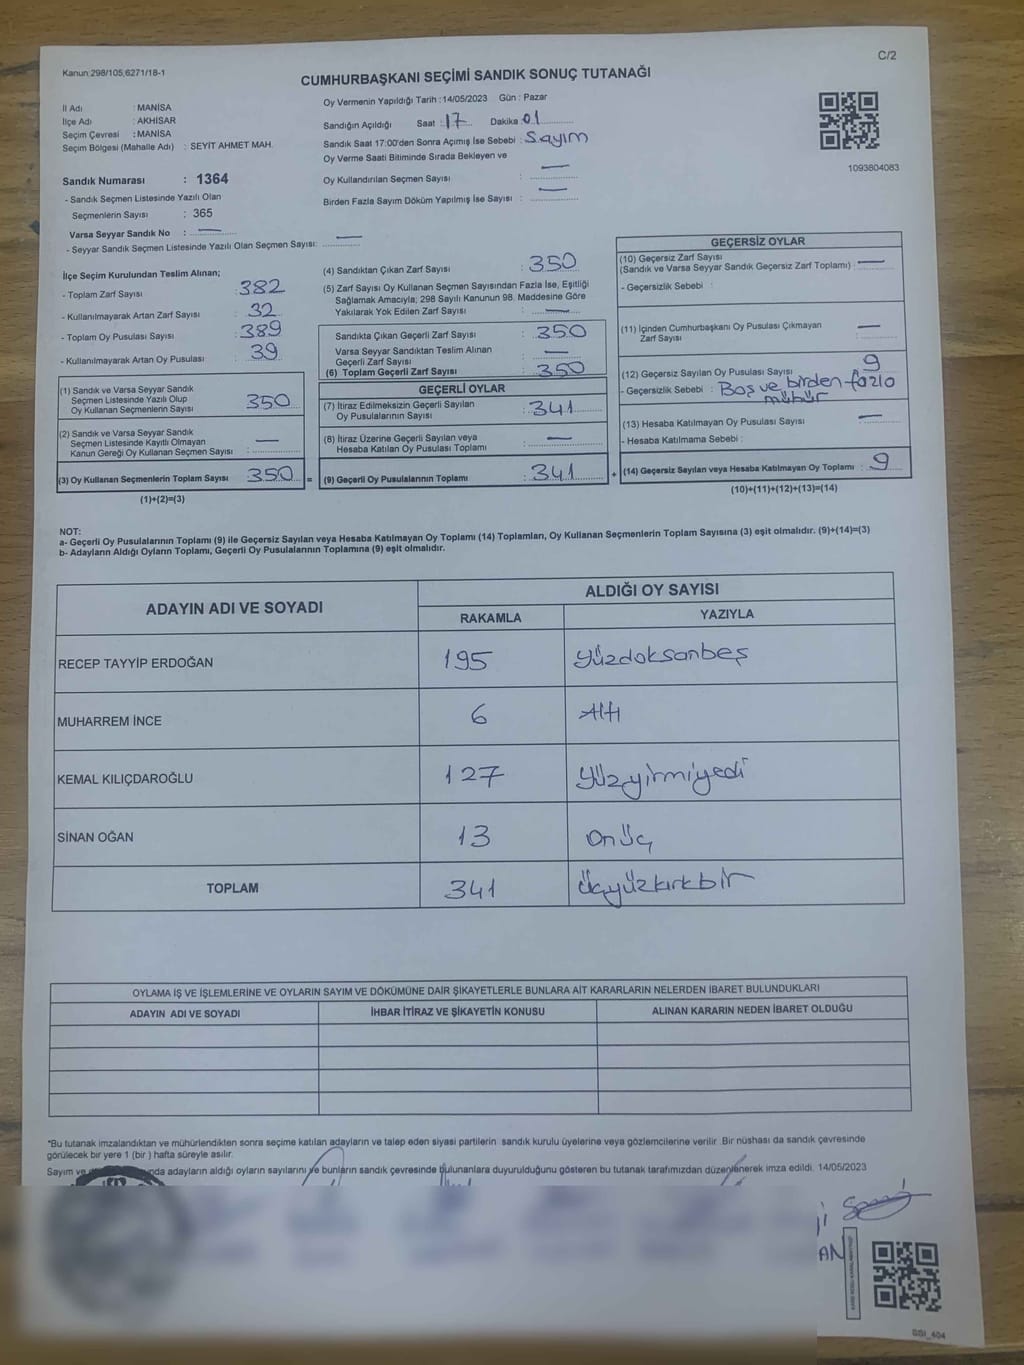 C/2
Kanun:298/105,6271/18-1
CUMHURBAŞKANI SEÇİMİ SANDIK SONUÇ TUTANAĞI
İl Adı : MANİSA
İlçe Adı : AKHİSAR
Seçim Çevresi : MANİSA
Seçim Bölgesi (Mahalle Adı) : SEYİT AHMET MAH.
Oy Vermenin Yapıldığı Tarih :14/05/2023 Gün : Pazar
Sandığın Açıldığı Saat : 17 Dakika : 01
Sandık Saat 17:00'den Sonra Açımış İse Sebebi : Sayım
Oy Verme Saati Bitiminde Sırada Bekleyen ve
Oy Kullandırılan Seçmen Sayısı : —
Birden Fazla Sayım Döküm Yapılmış İse Sayısı : —
1093804083
Sandık Numarası : 1364
- Sandık Seçmen Listesinde Yazılı Olan
Seçmenlerin Sayısı : 365
Varsa Seyyar Sandık No : —
- Seyyar Sandık Seçmen Listesinde Yazılı Olan Seçmen Sayısı: —
İlçe Seçim Kurulundan Teslim Alınan;
- Toplam Zarf Sayısı : 382
- Kullanılmayarak Artan Zarf Sayısı : 32
- Toplam Oy Pusulası Sayısı : 389
- Kullanılmayarak Artan Oy Pusulası : 39
(1) Sandık ve Varsa Seyyar Sandık
Seçmen Listesinde Yazılı Olup
Oy Kullanan Seçmenlerin Sayısı : 350
(2) Sandık ve Varsa Seyyar Sandık
Seçmen Listesinde Kayıtlı Olmayan
Kanun Gereği Oy Kullanan Seçmen Sayısı : —
(3) Oy Kullanan Seçmenlerin Toplam Sayısı : 350 =
(1)+(2)=(3)
(4) Sandıktan Çıkan Zarf Sayısı : 350
(5) Zarf Sayısı Oy Kullanan Seçmen Sayısından Fazla İse, Eşitliği
Sağlamak Amacıyla; 298 Sayılı Kanunun 98. Maddesine Göre
Yakılarak Yok Edilen Zarf Sayısı : —
Sandıkta Çıkan Geçerli Zarf Sayısı : 350
Varsa Seyyar Sandıktan Teslim Alınan
Geçerli Zarf Sayısı : —
(6) Toplam Geçerli Zarf Sayısı : 350
GEÇERLİ OYLAR
(7) İtiraz Edilmeksizin Geçerli Sayılan
Oy Pusulalarının Sayısı : 341
(8) İtiraz Üzerine Geçerli Sayılan veya
Hesaba Katılan Oy Pusulası Toplamı : —
(9) Geçerli Oy Pusulalarının Toplamı : 341 +
GEÇERSİZ OYLAR
(10) Geçersiz Zarf Sayısı
(Sandık ve Varsa Seyyar Sandık Geçersiz Zarf Toplamı) : —
- Geçersizlik Sebebi :
(11) İçinden Cumhurbaşkanı Oy Pusulası Çıkmayan
Zarf Sayısı : —
(12) Geçersiz Sayılan Oy Pusulası Sayısı : 9
- Geçersizlik Sebebi : Boş ve birden fazla
mühür
(13) Hesaba Katılmayan Oy Pusulası Sayısı : —
- Hesaba Katılmama Sebebi :
(14) Geçersiz Sayılan veya Hesaba Katılmayan Oy Toplamı : 9
(10)+(11)+(12)+(13)=(14)
NOT:
a- Geçerli Oy Pusulalarının Toplamı (9) ile Geçersiz Sayılan veya Hesaba Katılmayan Oy Toplamı (14) Toplamları, Oy Kullanan Seçmenlerin Toplam Sayısına (3) eşit olmalıdır. (9)+(14)=(3)
b- Adayların Aldığı Oyların Toplamı, Geçerli Oy Pusulalarının Toplamına (9) eşit olmalıdır.
ADAYIN ADI VE SOYADI ALDIĞI OY SAYISI
RAKAMLA YAZIYLA
RECEP TAYYİP ERDOĞAN 195 yüzdoksanbeş
MUHARREM İNCE 6 Altı
KEMAL KILIÇDAROĞLU 127 yüzyirmiyedi
SİNAN OĞAN 13 on üç
TOPLAM 341 üçyüzkırkbir
OYLAMA İŞ VE İŞLEMLERİNE VE OYLARIN SAYIM VE DÖKÜMÜNE DAİR ŞİKAYETLERLE BUNLARA AİT KARARLARIN NELERDEN İBARET BULUNDUKLARI
ADAYIN ADI VE SOYADI İHBAR İTİRAZ VE ŞİKAYETİN KONUSU ALINAN KARARIN NEDEN İBARET OLDUĞU
*Bu tutanak imzalandıktan ve mühürlendikten sonra seçime katılan adayların ve talep eden siyasi partilerin sandık kurulu üyelerine veya gözlemcilerine verilir. Bir nüshası da sandık çevresinde
görülecek bir yere 1 (bir ) hafta süreyle asılır.
Sayım ve nda adayların aldığı oyların sayılarını ve bunların sandık çevresinde bulunanlara duyurulduğunu gösteren bu tutanak tarafımızdan düzenlenerek imza edildi. 14/05/2023
AN
SSI_404